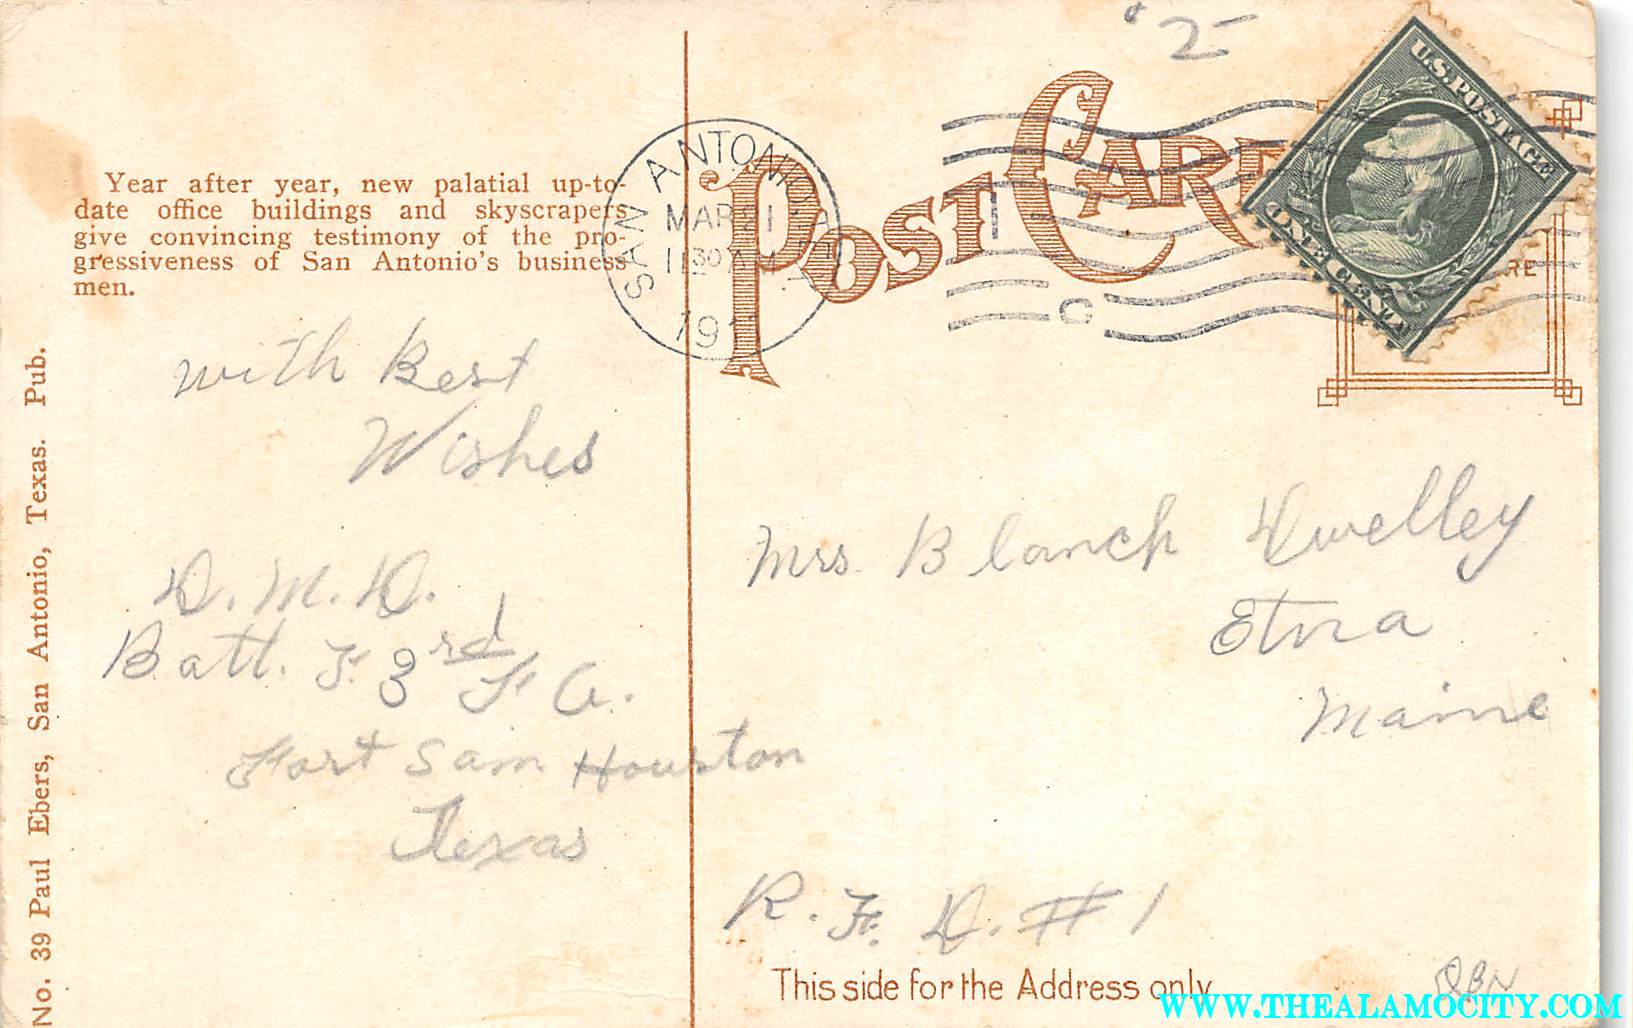 $2-
POST CARD
U.S. POSTAGE
ONE CENT
SAN ANTONIO, TEX.
MAR 21
11 30 AM
1
C
Year after year, new palatial up-to-
date office buildings and skyscrapers
give convincing testimony of the pro-
gressiveness of San Antonio's business
men.
No. 39 Paul Ebers, San Antonio, Texas. Pub.
With Best
Wishes
D. M. D.
Batt. F. 3rd F A.
Fort Sam Houston
Texas
Mrs. Blanch Dwelley
Etna
Maine
R. F. D. #1
This side for the Address only
WWW.THEALAMOCITY.COM